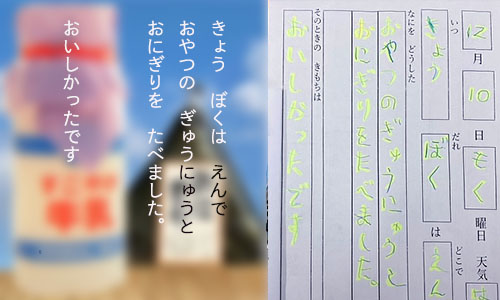 きょう ぼくは えんで
おやつの ぎゅうにゅうと
おにぎりを たべました。
おいしかったです
12 月 10 日 もく 曜日 天気
いつ だれ どこで
きょう ぼく は えん
なにを どうした
おやつのぎゅうにゅうと
おにぎりをたべました。
そのときの きもちは
おいしかったです